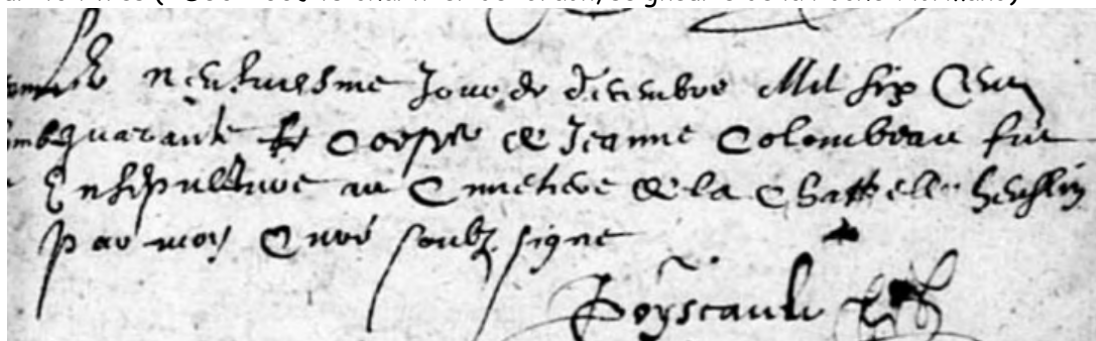 Le neufviesme Jour de decembre Mil six Cens
quarante le Corps de Jeanne Colombeau fut
Ensepulture au Cimetiere de la Chappelle heuslin
par moy Curé soubz signe
Boyscault